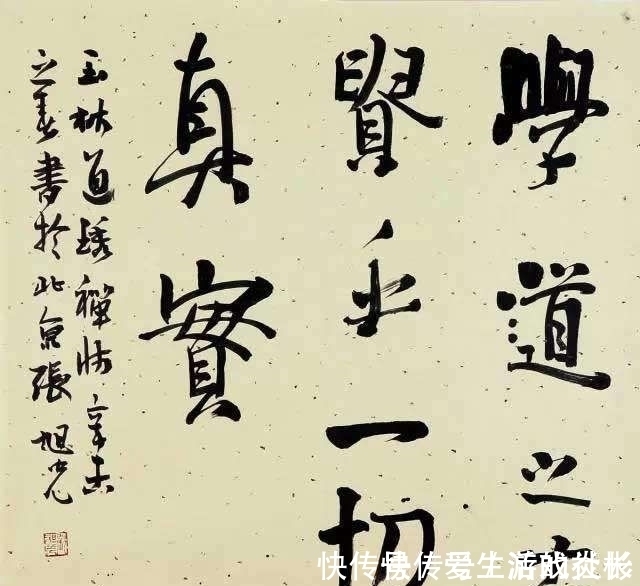 學道之
覺乎一切
真實
玉林道琇禪師辛
之春書於北京張旭光
快传号 / 爱生活